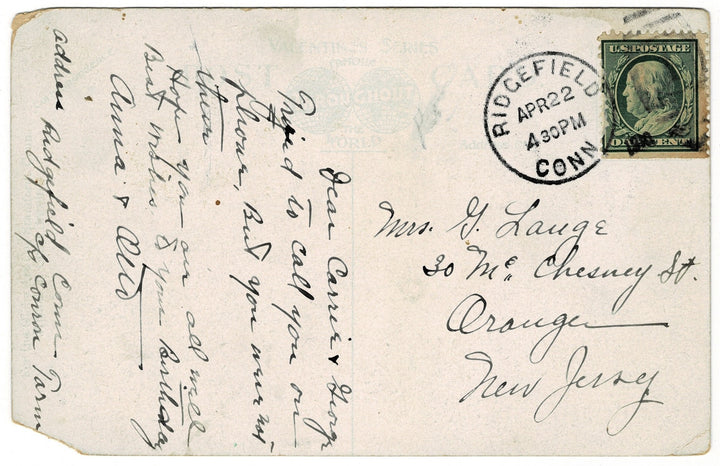 VALENTINE'S SERIES
FAMOUS
POST CARD
RIDGEFIELD
APR 22
4 30 PM
CONN.
U.S. POSTAGE
ONE CENT
Dear Carrie & George
Tried to call you on
phone, But you were not
there
Hope you are all well
Best wishes & your Birthday
Anna & Otto
address Ridgefield Conn
c/o Conron Farm
Mrs. G. Lange
30 Mc Chesney St.
Orange
New Jersey